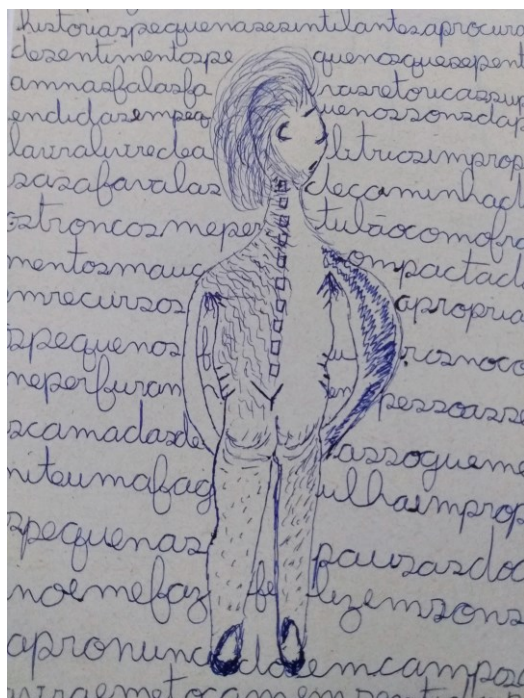 historiaspequenasesintilantesaprocura
desentimentospe quenosquesepent
amnasfalasfa rasretoricassusp
endidasempeq uenossonsdap
lavralivredea bitriosimprop
sasafavalas decaminhad
ostroncosmeper tulãocomofra
mentosmauc ompactad
mrecursos apropria
spequenos rosnoco
meperfuram em pessoasse
scamadasde assogueme
niteumafag ulhaimprop
spequenas pausasdoc
noemefaz fe lizemsons
apronunc doemcampos